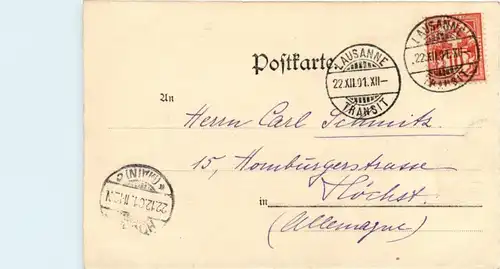 Postkarte.
LAUSANNE
22.XII.01.XII-
TRANSIT
LAUSANNE
22.XII.01.XII-
TRANSIT
An
Herrn Carl Schmitz.
15, Homburgerstrasse
Höchst.
in
(Allemagne)
(MAIN)
22.12.01.